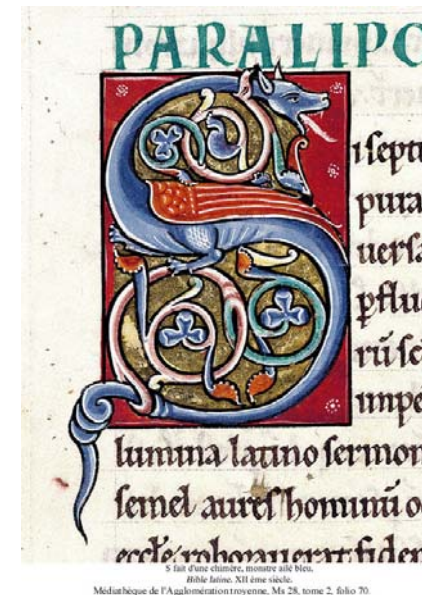 PARALIPO
Si septu
pura
uersa
ꝑflu
rū sc
impe
lumina latino sermon
semel aures hominū o
eccłe roborauerat fidem
S fait d'une chimère, monstre ailé bleu.
Bible latine. XII ème siècle.
Médiathèque de l'Agglomération troyenne, Ms 28, tome 2, folio 70.